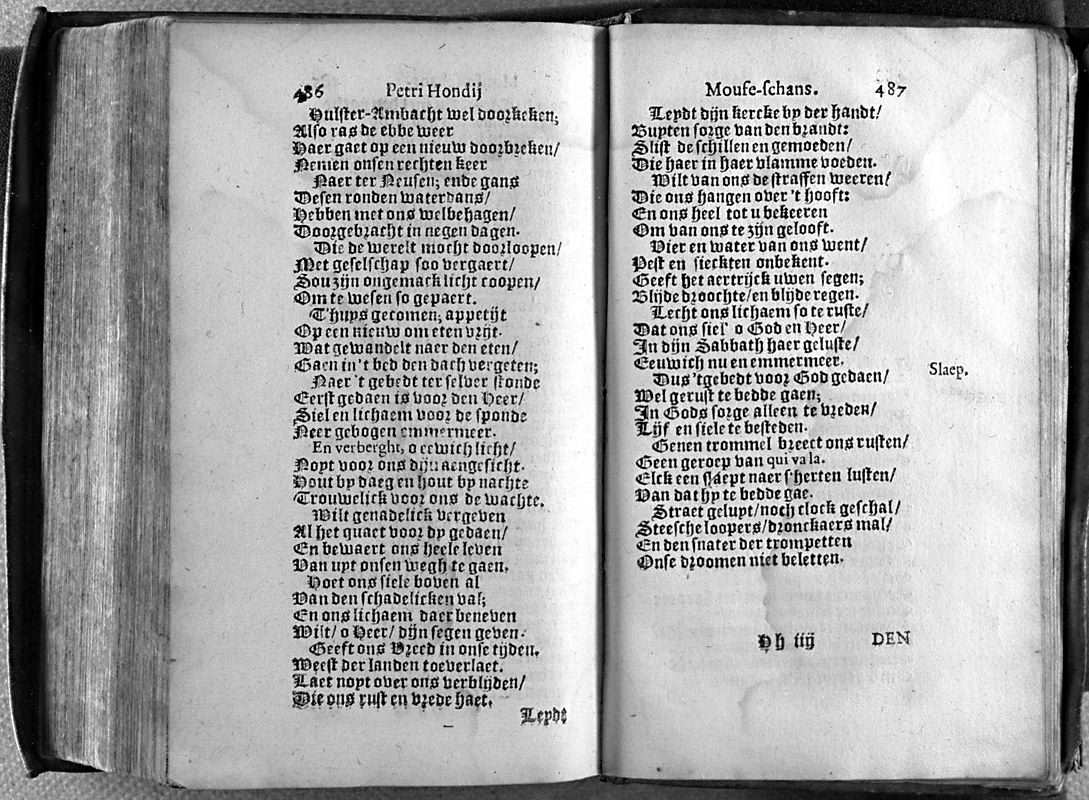 486 Petri Hondij
Hulster-Ambacht wel doorkeken;
Also ras de ebbe weer
Haer gaet op een nieuw doorbreken/
Nemen onsen rechten keer
Naer ter Neusen; ende gans
Desen ronden waterdans/
Hebben met ons welbehagen/
Doorgebracht in negen dagen.
Die de werelt mocht doorloopen/
Met geselschap soo vergaert/
Sou zijn ongemack licht coopen/
Om te wesen so gepaert.
T'huys gecomen; appetijt
Op een nieuw om eten vrijt.
Wat gewandelt naer den eten/
Gaen in't bed den dach vergeten;
Naer 't gebedt ter selver stonde
Eerst gedaen is voor den Heer/
Siel en lichaem voor de sponde
Neer gebogen emmermeer.
En verberght, o eewich licht/
Noyt voor ons dijn aengesicht.
Hout by daeg en hout by nachte
Trouwelick voor ons de wachte.
Wilt genadelick vergeven
Al het quaet voor dy gedaen/
En bewaert ons heele leven
Van uyt onsen wegh te gaen.
Hoet ons siele boven al
Van den schadelicken val;
En ons lichaem daer beneven
Wilt/ o Heer/ dijn segen geven.
Geeft ons Vreed in onse tijden.
Weest der landen toeverlaet.
Laet noyt over ons verblijden/
Die ons rust en vrede haet.
Leydt
Mouse-schans. 487
Leydt dijn kercke by der handt/
Buyten sorge van den brandt:
Slist de schillen en gemoeden/
Die haer in haer vlamme voeden.
Wilt van ons de straffen weeren/
Die ons hangen over 't hooft:
En ons heel tot u bekeeren
Om van ons te zijn gelooft.
Vier en water van ons went/
Pest en sieckten onbekent.
Geeft het aertrijck uwen segen;
Blijde droochte/en blijde regen.
Lecht ons lichaem so te ruste/
Dat ons siel' o God en Heer/
In dijn Sabbath haer geluste/
Eeuwich nu en emmermeer.
Dus 'tgebedt voor God gedaen/
Slaep.
Wel gerust te bedde gaen;
In Gods sorge alleen te vreden/
Lijf en siele te besteden.
Genen trommel breect ons rusten/
Geen geroep van qui va la.
Elck een slaept naer s'herten lusten/
Van dat hy te bedde gae.
Straet gelupt/noch clock geschal/
Steesche loopers/dronckaers mal/
En den snater der trompetten
Onse droomen niet beletten.
Hh iij DEN